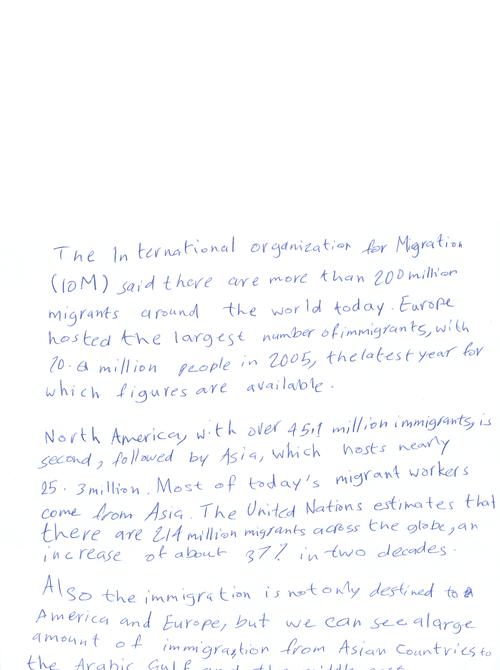 The International organization for Migration
(IOM) said there are more than 200 million
migrants around the world today. Europe
hosted the largest number of immigrants, with
million people in 2005, the latest year for
which figures are available.
North America, with over 45,1 million immigrants, is
second, followed by Asia, which hosts nearly
25.3 million. Most of today's migrant workers
come from Asia. The United Nations estimates that
there are 214 million migrants across the globe, an
increase of about 37% in two decades.
Also the immigration is not only destined to
America and Europe, but we can see a large
amount of immigration from Asian Countries to
the Arabic Gulf and the middle